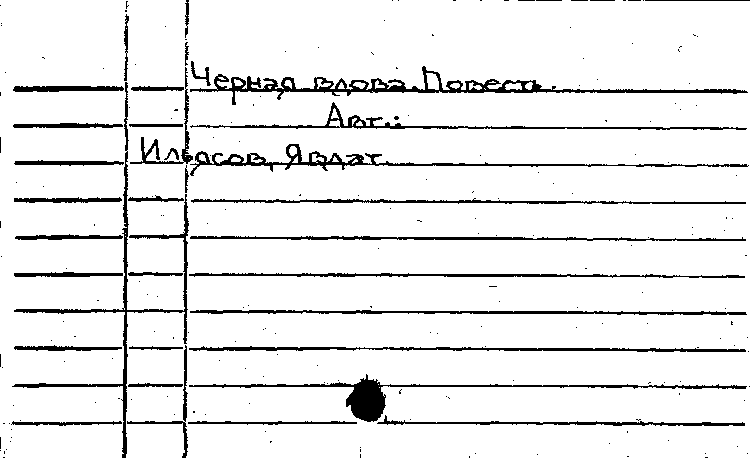 Черная вдова. Повесть.
Авт.:
Ильясов, Явдат